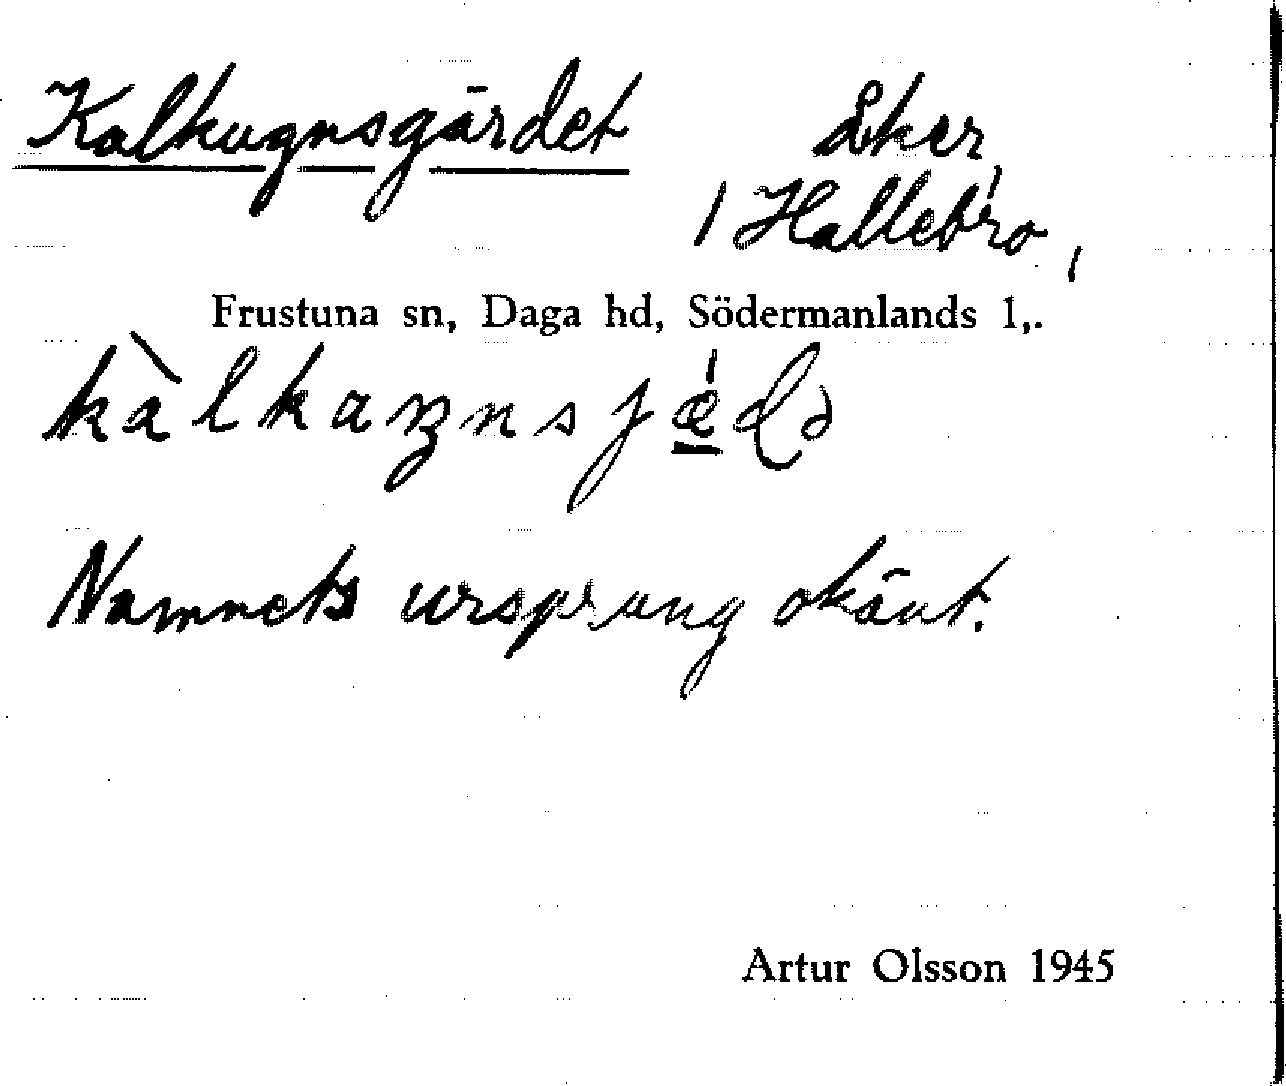 Kalkugnsgärdet
Åker,
i Hallebro,
Frustuna sn, Daga hd, Södermanlands l,.
Namnets ursprung okänt.
Artur Olsson 1945